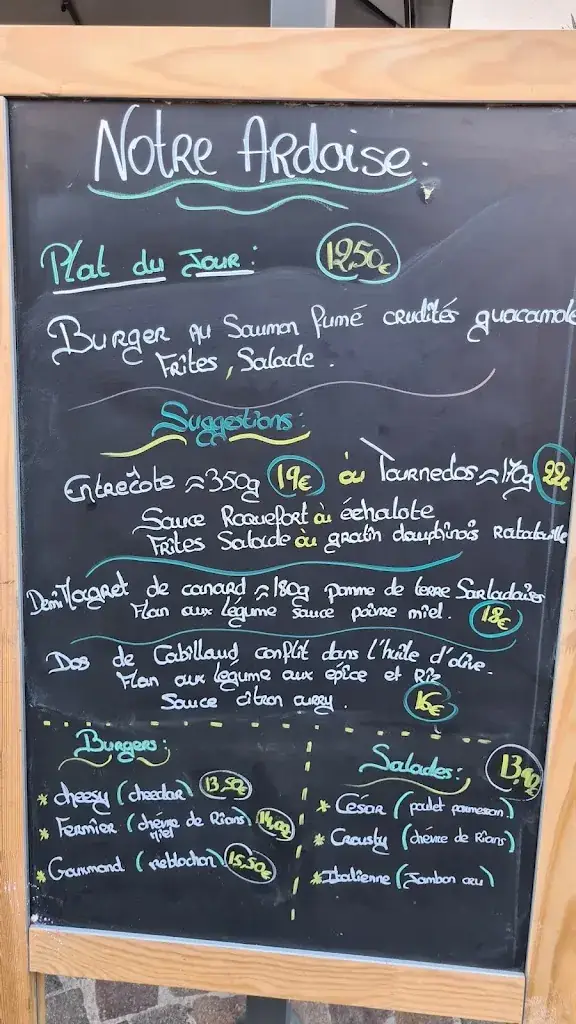 Notre Ardoise.
Plat du Jour : 12,50€
Burger au Saumon fumé crudités guacamole
Frites, Salade.
Suggestions :
Entrecôte ≈ 350g 19€ ou Tournedos ≈ 170g 22€
Sauce Roquefort ou échalote
Frites Salade ou gratin dauphinois Ratatouille
Demi Magret de canard ≈ 180g pomme de terre Sarladaises
Flan aux légume sauce poivre miel. 18€
Dos de Cabillaud conflit dans l'huile d'olive.
Flan aux légume aux épice et Riz
Sauce citron curry. 16€
Burgers :
* cheesy (cheedar) 13,50€
* Fermier (chèvre de Rians) 14,00€
miel
* Gourmand (reblochon) 15,50€
Salades : 13,90
* César (poulet parmesan)
* Crousty (chèvre de Rians)
* Italienne (Jambon cru)